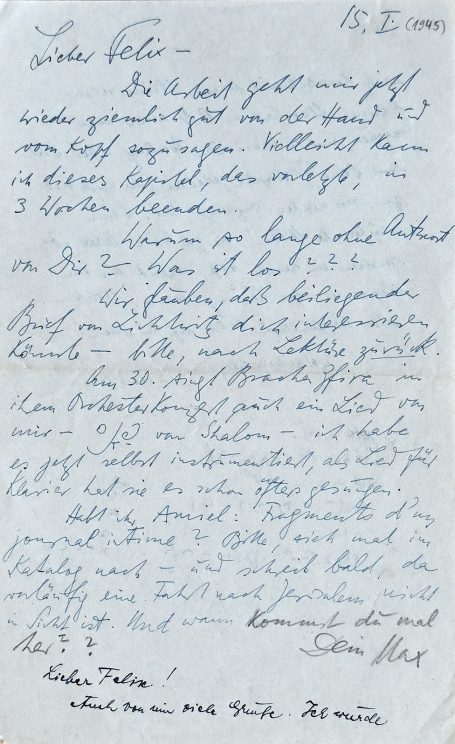 15. I. (1945)
Lieber Felix –
Die Arbeit geht mir jetzt
wieder ziemlich gut von der Hand und
vom Kopf sozusagen. Vielleicht kann
ich dieses Kapitel, das vorletzte, in
3 Wochen beenden.
Warum so lange ohne Antwort
von Dir? – Was ist los???
Wir glauben, daß beiliegender
Brief von dich interessieren
könnte – bitte, nach Lektüre zurück.
Am 30. singt Bracha Zfira in
ihrem Orchesterkonzert auch ein Lied von
mir – von Shalom – ich habe
es jetzt selbst instrumentiert, als Lied für
Klavier hat sie es schon öfters gesungen.
Habt ihr Amiel: Fragments d'un
journal intime? Bitte, sieh mal im
Katalog nach – und schreib bald, da
vorläufig eine Fahrt nach Jerusalem nicht
in Sicht ist. Und wann kommst du mal
her??
Dein Max
Lieber Felix!
Auch von mir viele Grüße. Ich wurde